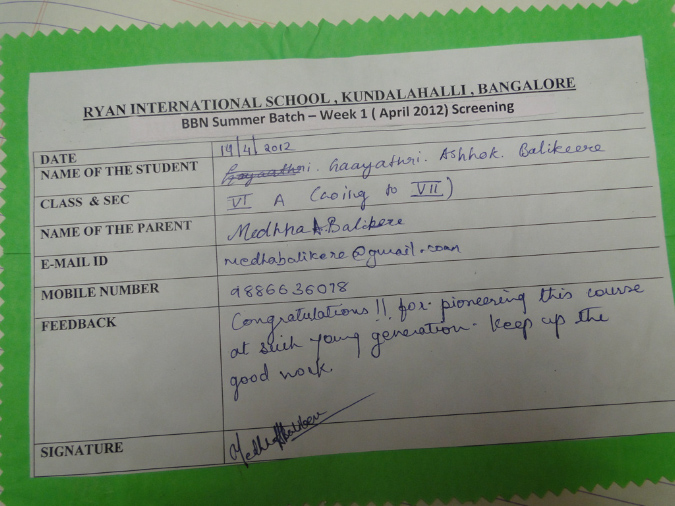 RYAN INTERNATIONAL SCHOOL , KUNDALAHALLI , BANGALORE
BBN Summer Batch – Week 1 ( April 2012) Screening
DATE 19/4/2012
NAME OF THE STUDENT Gaayathri. Ashhok. Balikeere
CLASS & SEC VI A (Going to VII)
NAME OF THE PARENT Medhha A. Balikere
E-MAIL ID medhabalikere@gmail.com
MOBILE NUMBER 9886636078
FEEDBACK Congratulations!! for pioneering this course
at such young generation. Keep up the
good work.
SIGNATURE